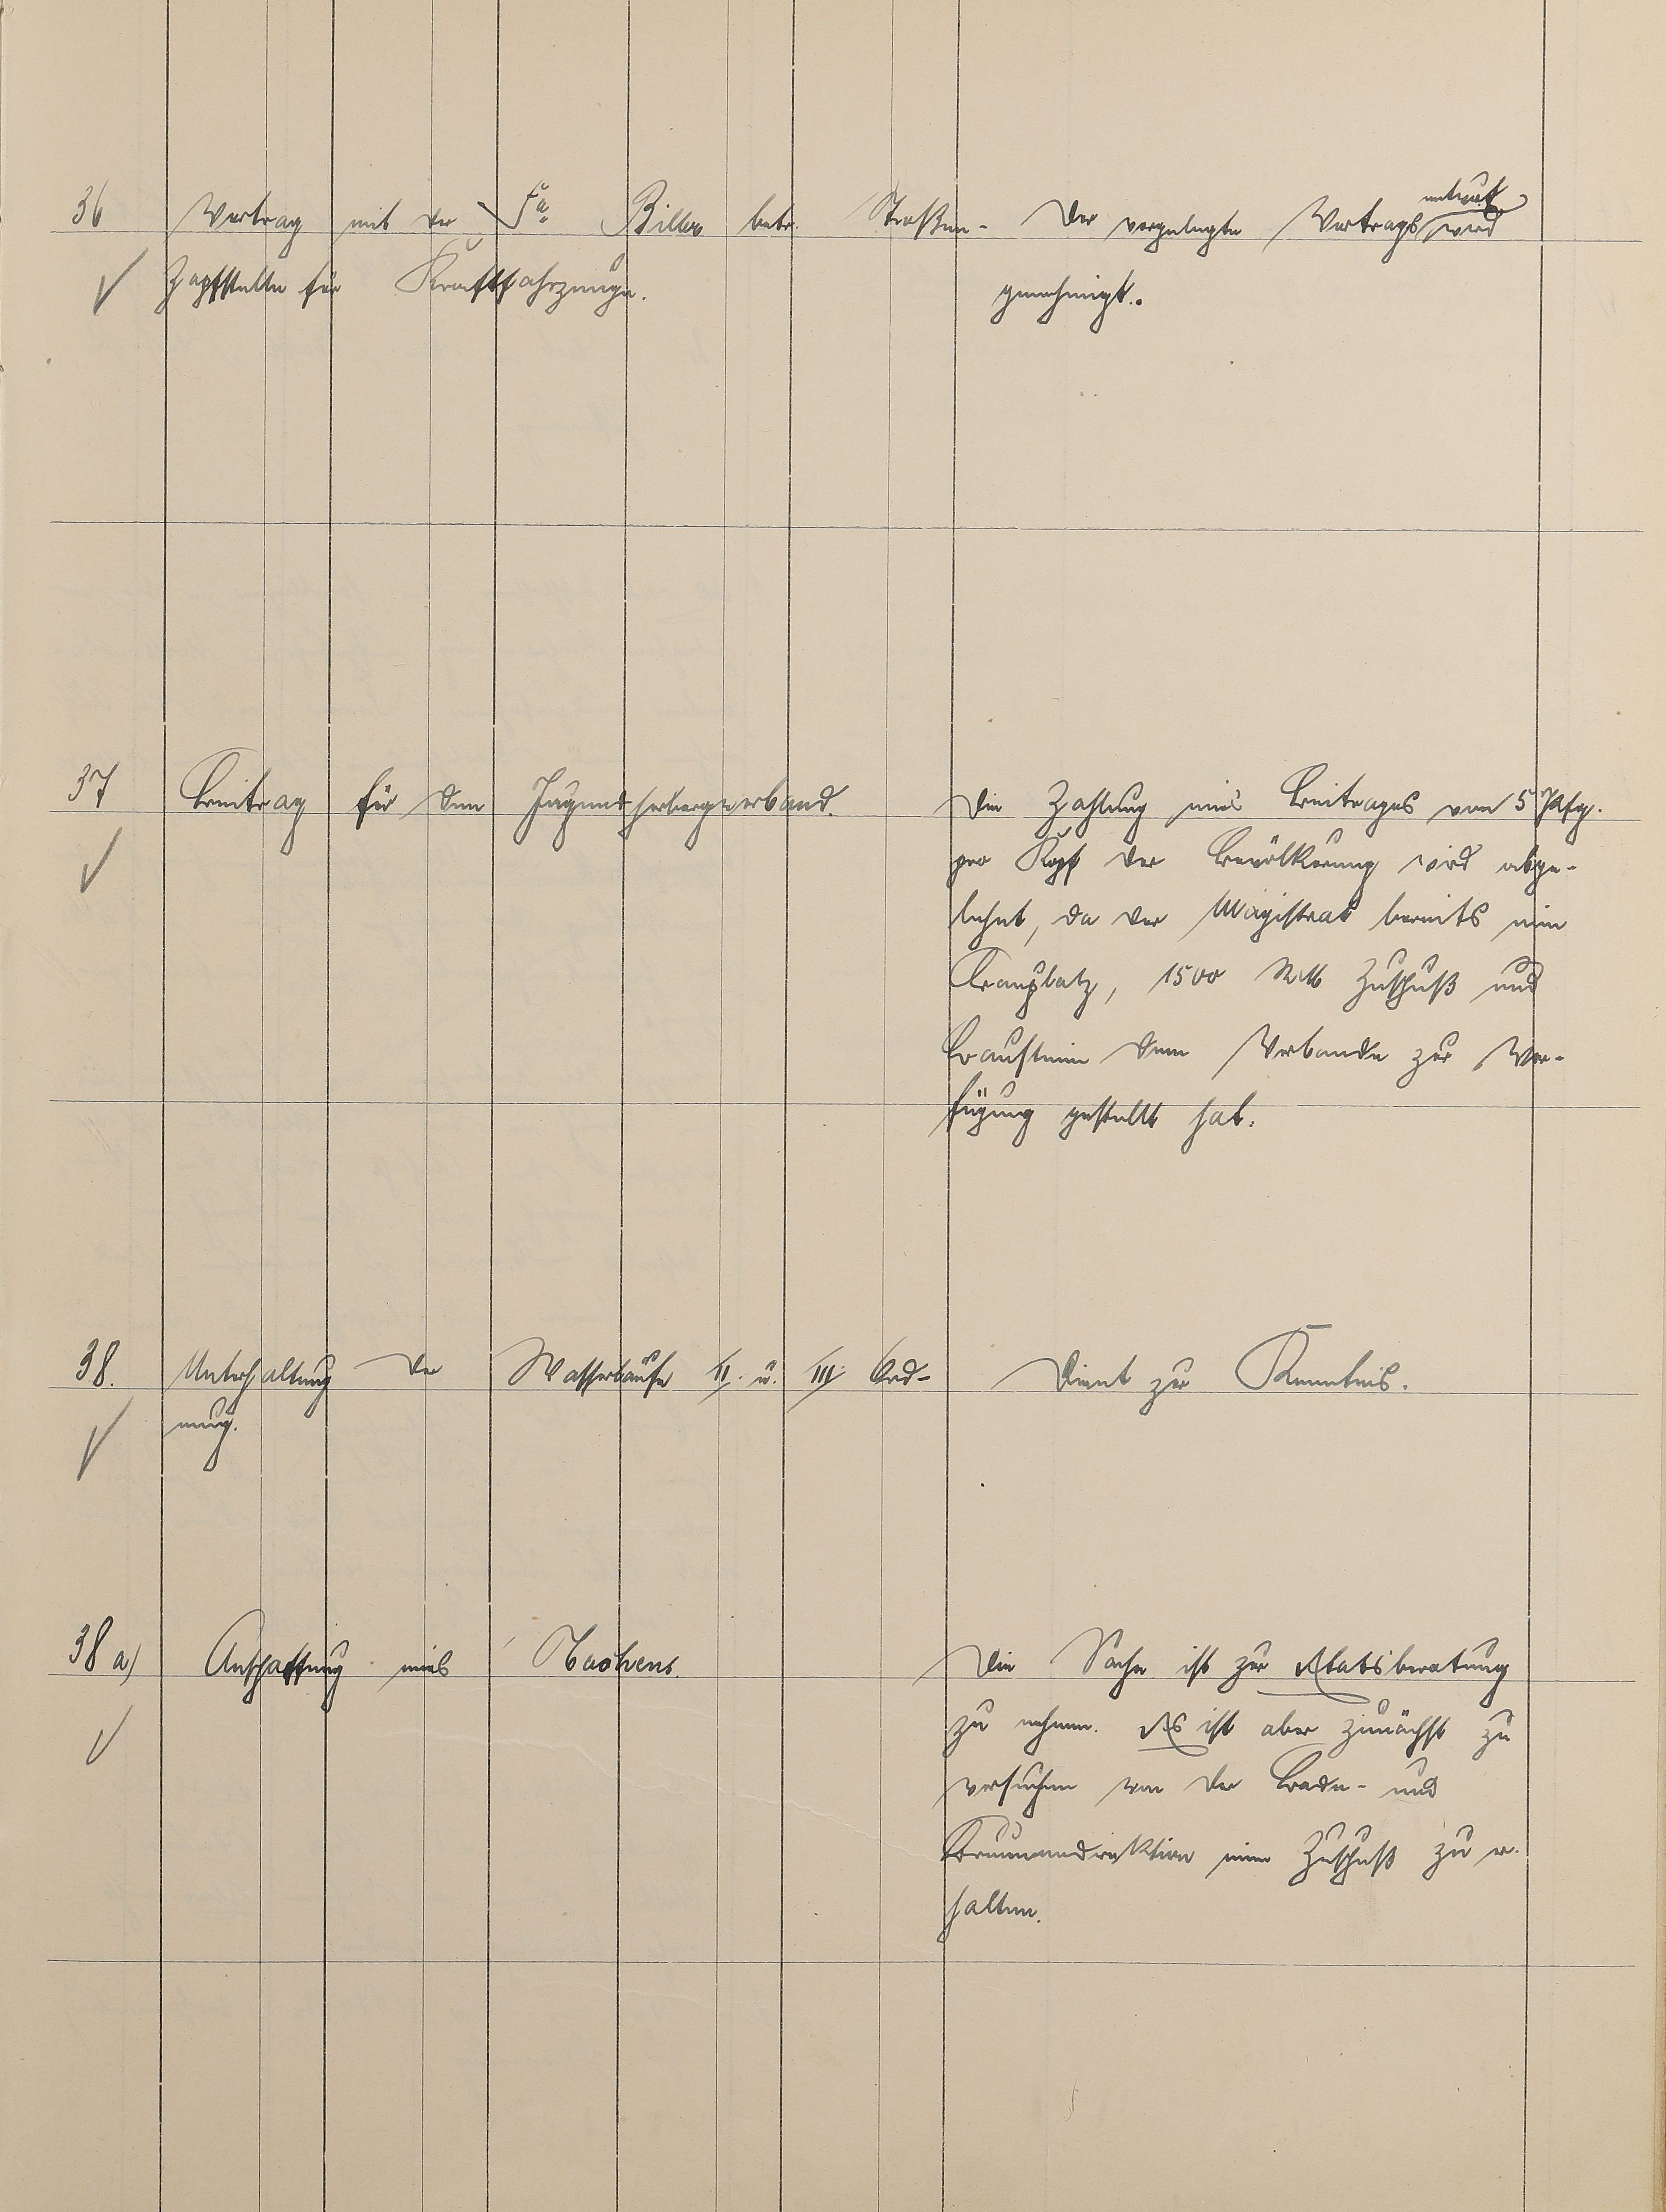 36 Vertrag mit der Fa. Biller betr. Straßen-
Zapfstelle für Kraftfahrzeuge.
Der vorgelegte Vertragsentwurf wird
genehmigt.
37 Beitrag für den Jugendherbergsverband.
Die Zahlung eines Beitrages von 5 Pfg.
pro Kopf der Bevölkerung wird abge-
lehnt, da der Magistrat bereits einen
1500 RM Zuschuß und
Bausteine dem Verbande zur Ver-
fügung gestellt hat.
38. Unterhaltung der Wasserläufe II. u. III. Ord-
nung.
Dient zur Kenntnis.
38 a) Anschaffung eines Nachens.
Die Sache ist zur Etatsberatung
zu nehmen. Es ist aber zunächst zu
versuchen von der Bade- und
Brunnendirektion einen Zuschuß zu er-
halten.